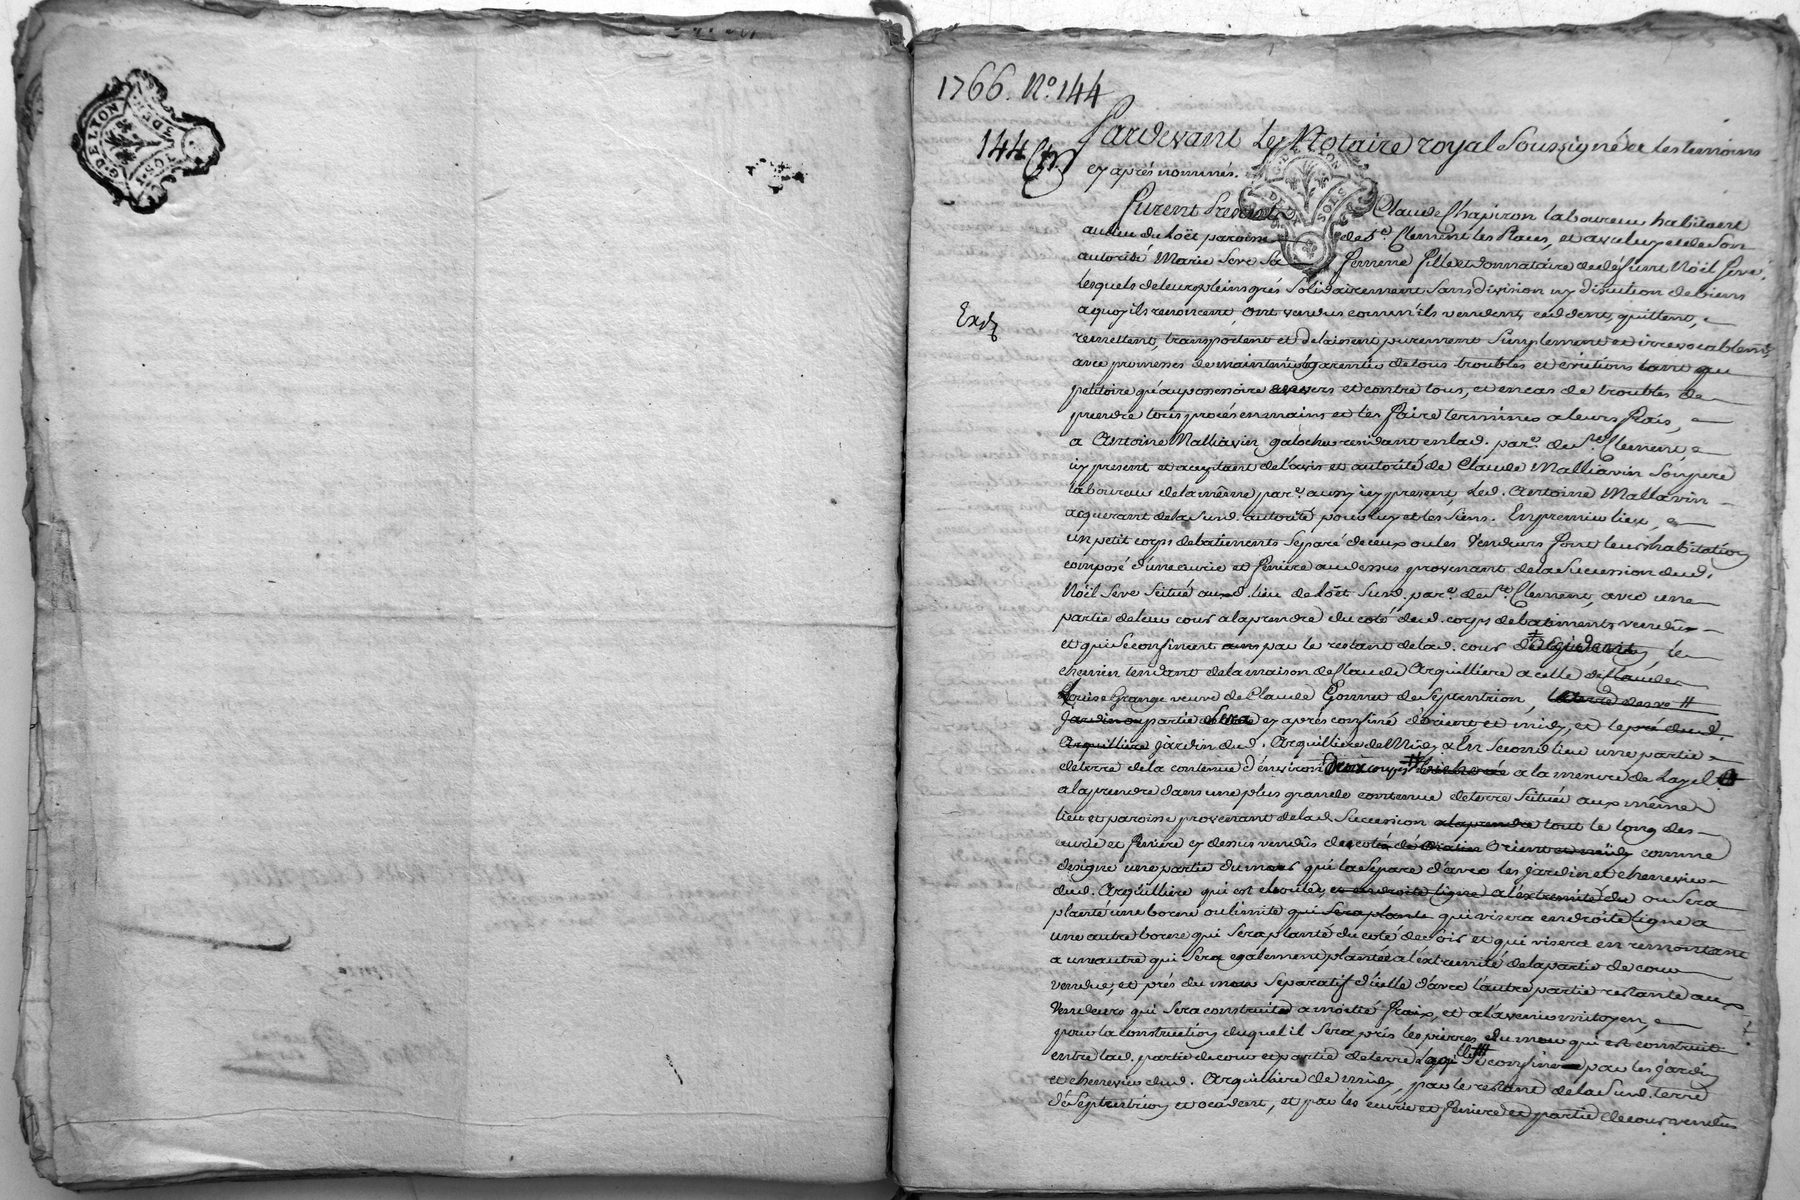 G. DE LYON
3 DE
SOLS
1766. N.º 144
144
Pardevant Le Notaire royal Soussigné et les temoins
cy après nommés.
G. DE LYON
SOLS
furent presents Claude Chapiron laboureur habitant
au lieu du Loët paroisse de S.t Clement les Places, et avec luy et de son
autorité Marie Seve sa femme fille et donnataire de défunt Nöil Seve,
lesquels de leurs pleins grés Solidairement Sans division ny discution de biens
a quoy ils renoncent, ont vendus comm'ils vendent, ceddent, quittent,
Exd.
remettent, transportent et delaissent purement Simplement et irrevocablem.t
avec promesses de maintenir garentir de tous troubles et évictions tant au
petitoire qu'au possessoire envers et contre tous, et en cas de troubles de
prendre tous procés en mains et les faire terminer a leurs frais,
a Antoine Malliavin galocher residant en lad. par.e de S.t Clement,
icy present et acceptant de l'avis et autorité de Claude Malliavin Son pere
laboureur de la même par.e aussy icy present, led. Antoine Mallavin
acquerant de la Susd. autorité pour luy et les Siens. En premier lieu,
un petit corps de batiments Separé de ceux ou les Vendeurs font leurs habitation
composé d'une ecurie et feniere au dessus provenant de la Succession dud.
Nöil Seve Scitué aud. lieu de Loët Susd. par.e de S.t Clement, avec une
partie de leur cour a la prendre du coté dud. corps de batiments vendus
et qui Se confinent par le restant de lad. cour le
chemin tendant de la maison de Claude Arquilliere a celle de Claude
Louise Grange veuve de Claude Gonnet de Septentrion,
jardin ou partie de terre cy après confiné d'orient et midy, et le pré dud.
Arquilliere jardin dud. Arquilliere de Midy & En Second lieu une partie
de terre de la contenue d'environ deux coupes a la mesure de Lay
a la prendre dans une plus grande contenue de terre Scituée aux même
lieu et paroisse provenant de lad. Succession a la prendre tout le long des
ecurie et feniere cy dessus vendus du coté de Orient et midy comme
designe une partie du mur qui la Separe d'avec les jardin et chenevier
dud. Arquilliere qui est eboulée, et en droite ligne a l'extremité du ou Sera
planté une borne ou limite qui Sera plante qui visera en droite ligne a
une autre borne qui Sera planté du coté de Soir et qui visera en remontant
a un autre qui Sera egalement planté a l'extremité de la partie de cour
vendue, et près du mur Separatif d'icelle d'avec l'autre partie restante aux
Vendeurs qui Sera construit a moitié fraix, et a l'avenir mitoyen,
pour la construction duquel il Sera pris les pierres du mur qui est construit
entre lad. partie de cour et partie de terre Se confine par les jardin
et chenevier dud. Arquilliere de midy, par le restant de la Susd. terre
de Septentrion et occident, et par les ecurie et feniere et partie de cour vendus